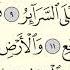 لَى ٱلسَّرَآئِرُ ٩
عِ ١١ وَٱلْأَرْضِ